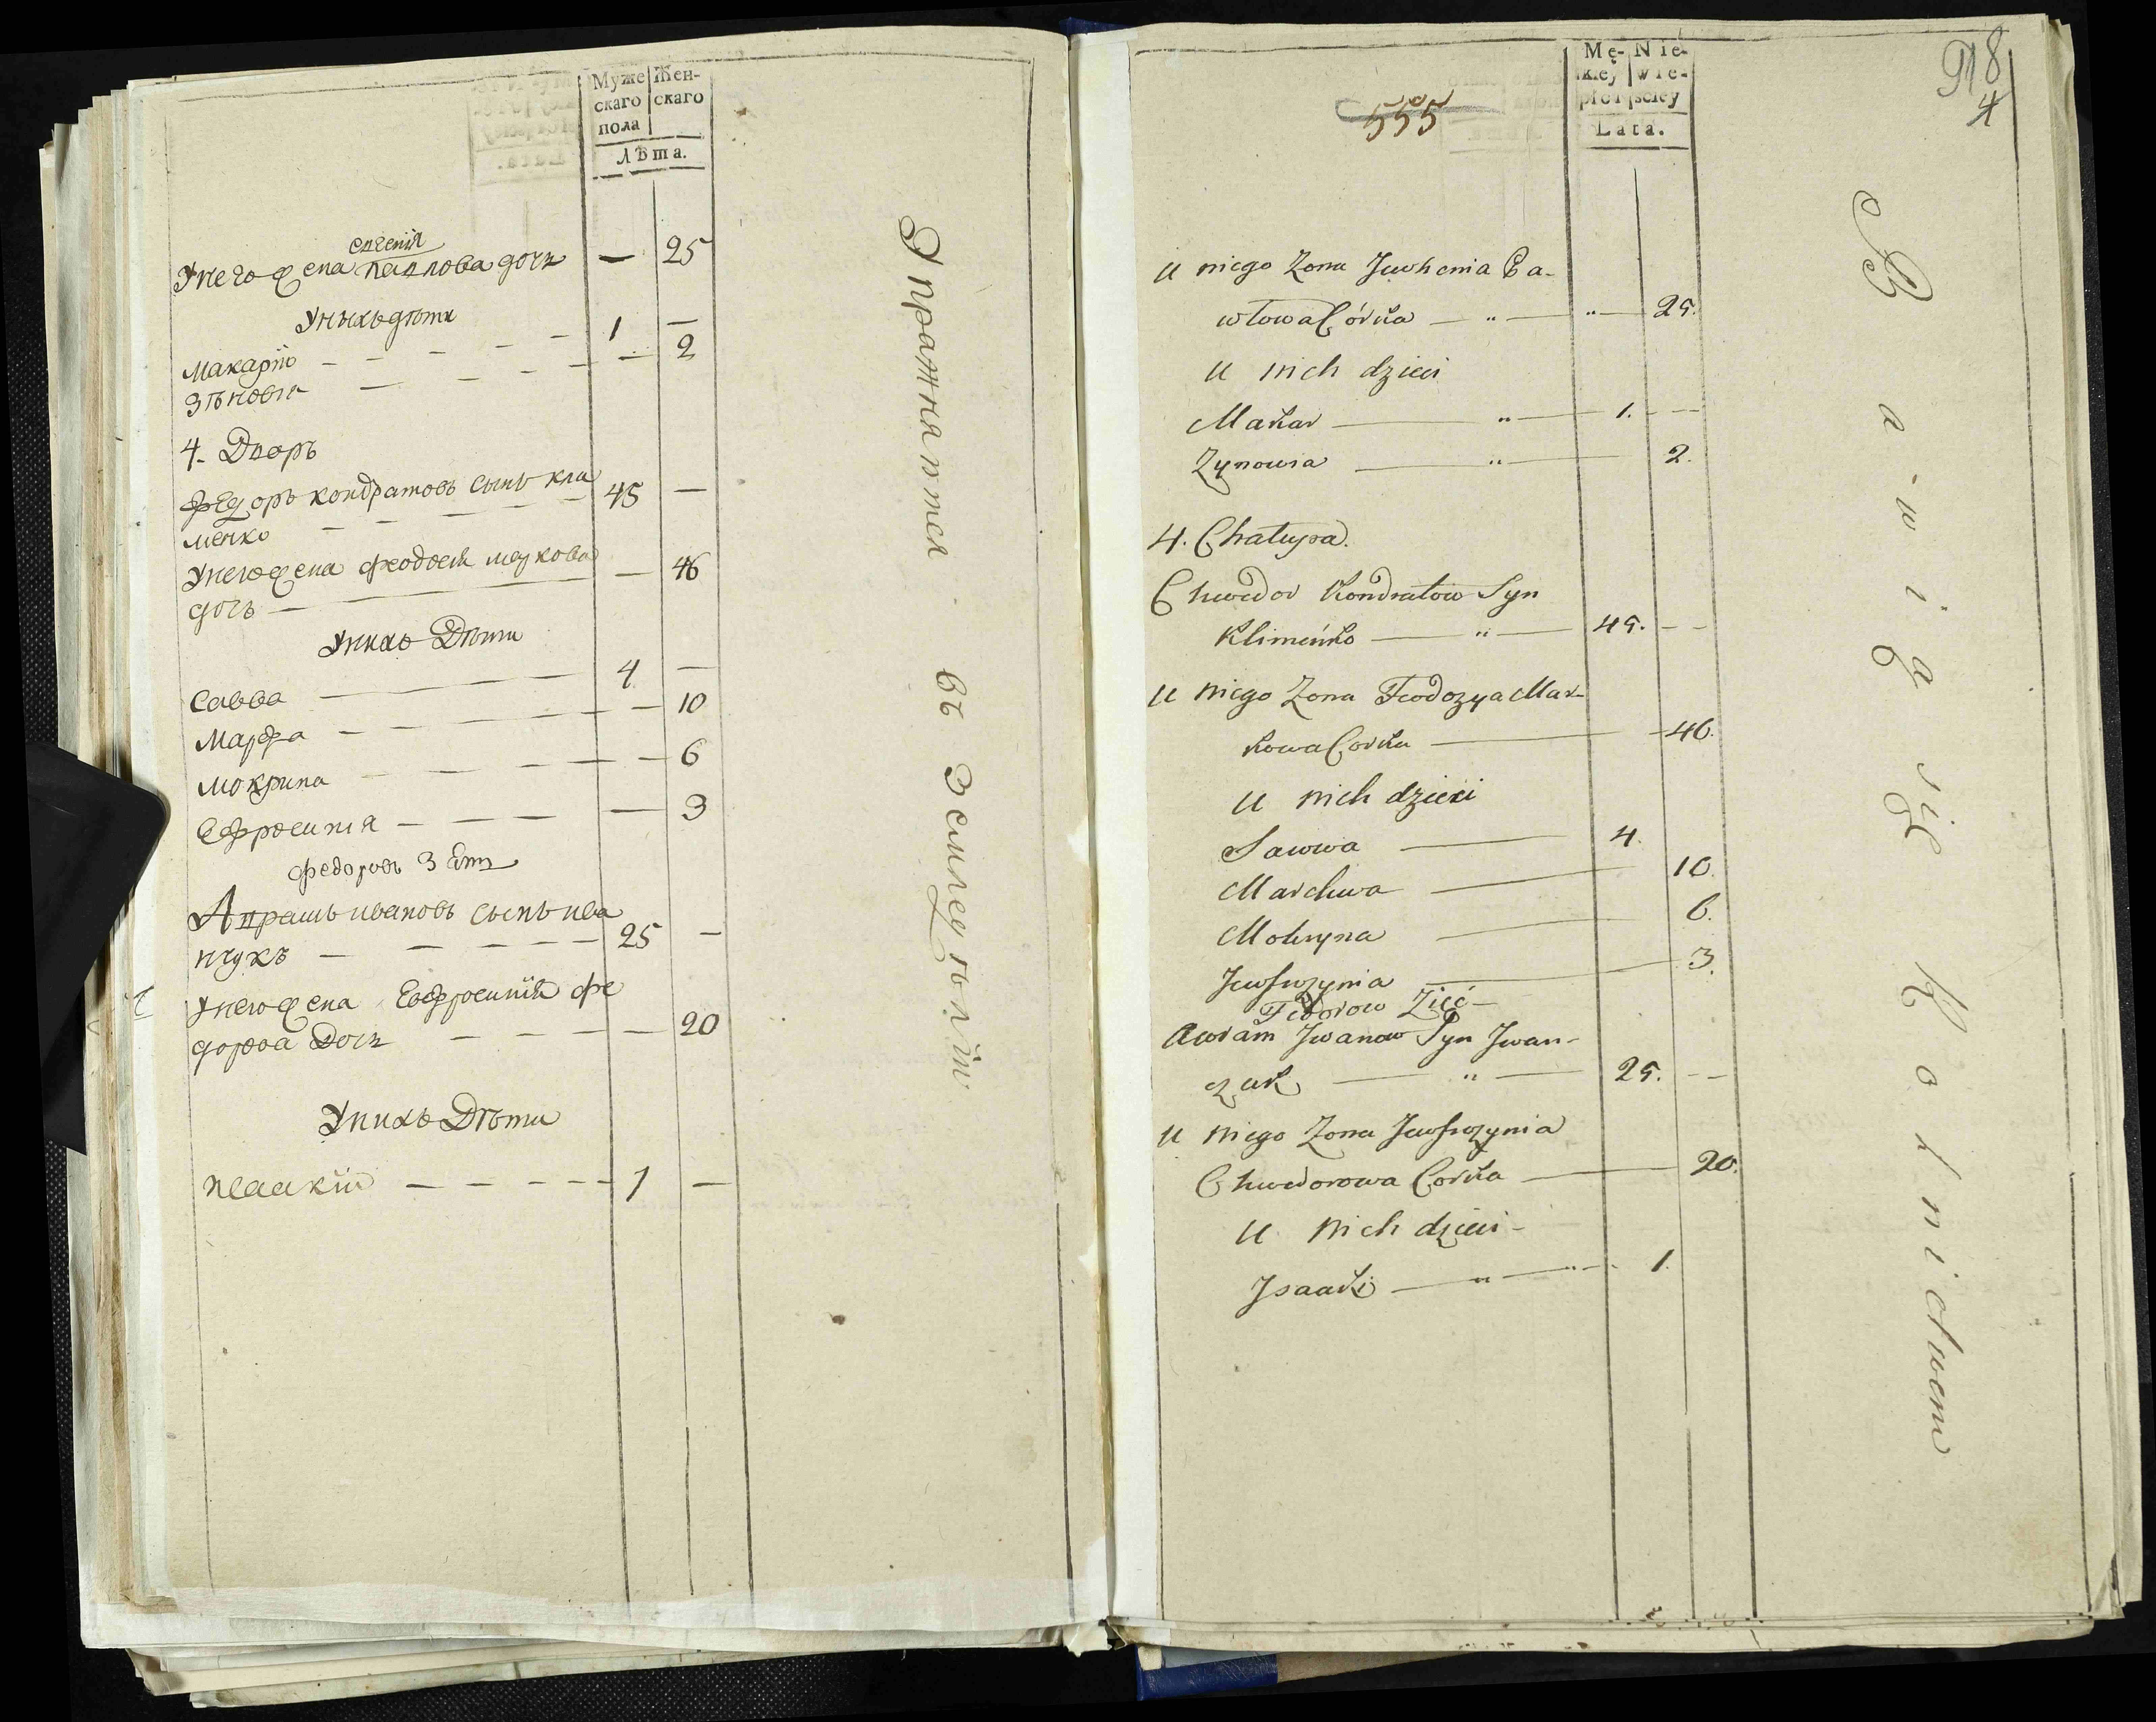 Муже Жен-
скаго скаго
пола
Лѣта.
евгенія
Унего жена павлова дочь — 25
Унихъ дѣти
макарій 1 —
Зѣновія — 2
4. Дворъ
федоръ кондратовъ сынъ кли
менко 45 —
Унего жена феодосія маркова
дочь — 46
Унихъ Дѣти
Савва 4 —
Марфа — 10
мокрина — 6
Ефросинія — 3
федоровъ зять
Аврамъ ивановъ сынъ ива
нчукъ 25 —
Унего жена Евфросинія фе
дорова Дочь — 20
Унихъ Дѣти
исаакій 1 —
Упражняются въ Земледѣліи
555
Mę- Nie-
skiey wie-
płci sciey
Lata.
918
4
u niego Zona Jewhenia Pa-
włowa Córka — " — " — 25.
u nich dzieci
Makar — " — 1. --
Zynowia — " — 2.
4. Chałupa.
Chwedor Kondratow Syn
Klimeńko — " — 45. --
u niego Zona Feodozya Mar-
kowa Corka — 46.
u nich dzieci
Sawwa — 4.
Marchwa — 10.
Mokryna — 6.
Jewfrozynia — 3.
Fedorow Zięć -
Awram Jwanow Syn Jwan-
czuk — " — 25. --
u niego Zona Jewfrozynia
Chwedorowa Corka — 20.
u nich dzieci -
Jsaaki — " — " — 1.
Bawią się Rolnictwem